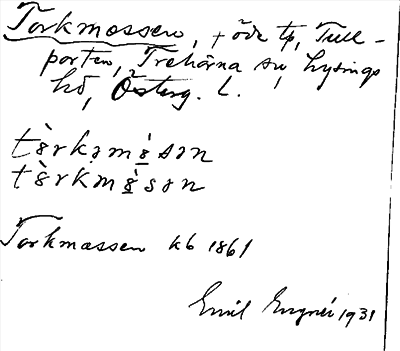 Torkmossen, + öde tp, Tull-
porten, Trehörna sn, Lysings
hd, Österg. L.
tò̤rkəmò̤sən
tò̤rkmò̤sən
Torkmossen kb 1861
Emil Engnér 1931